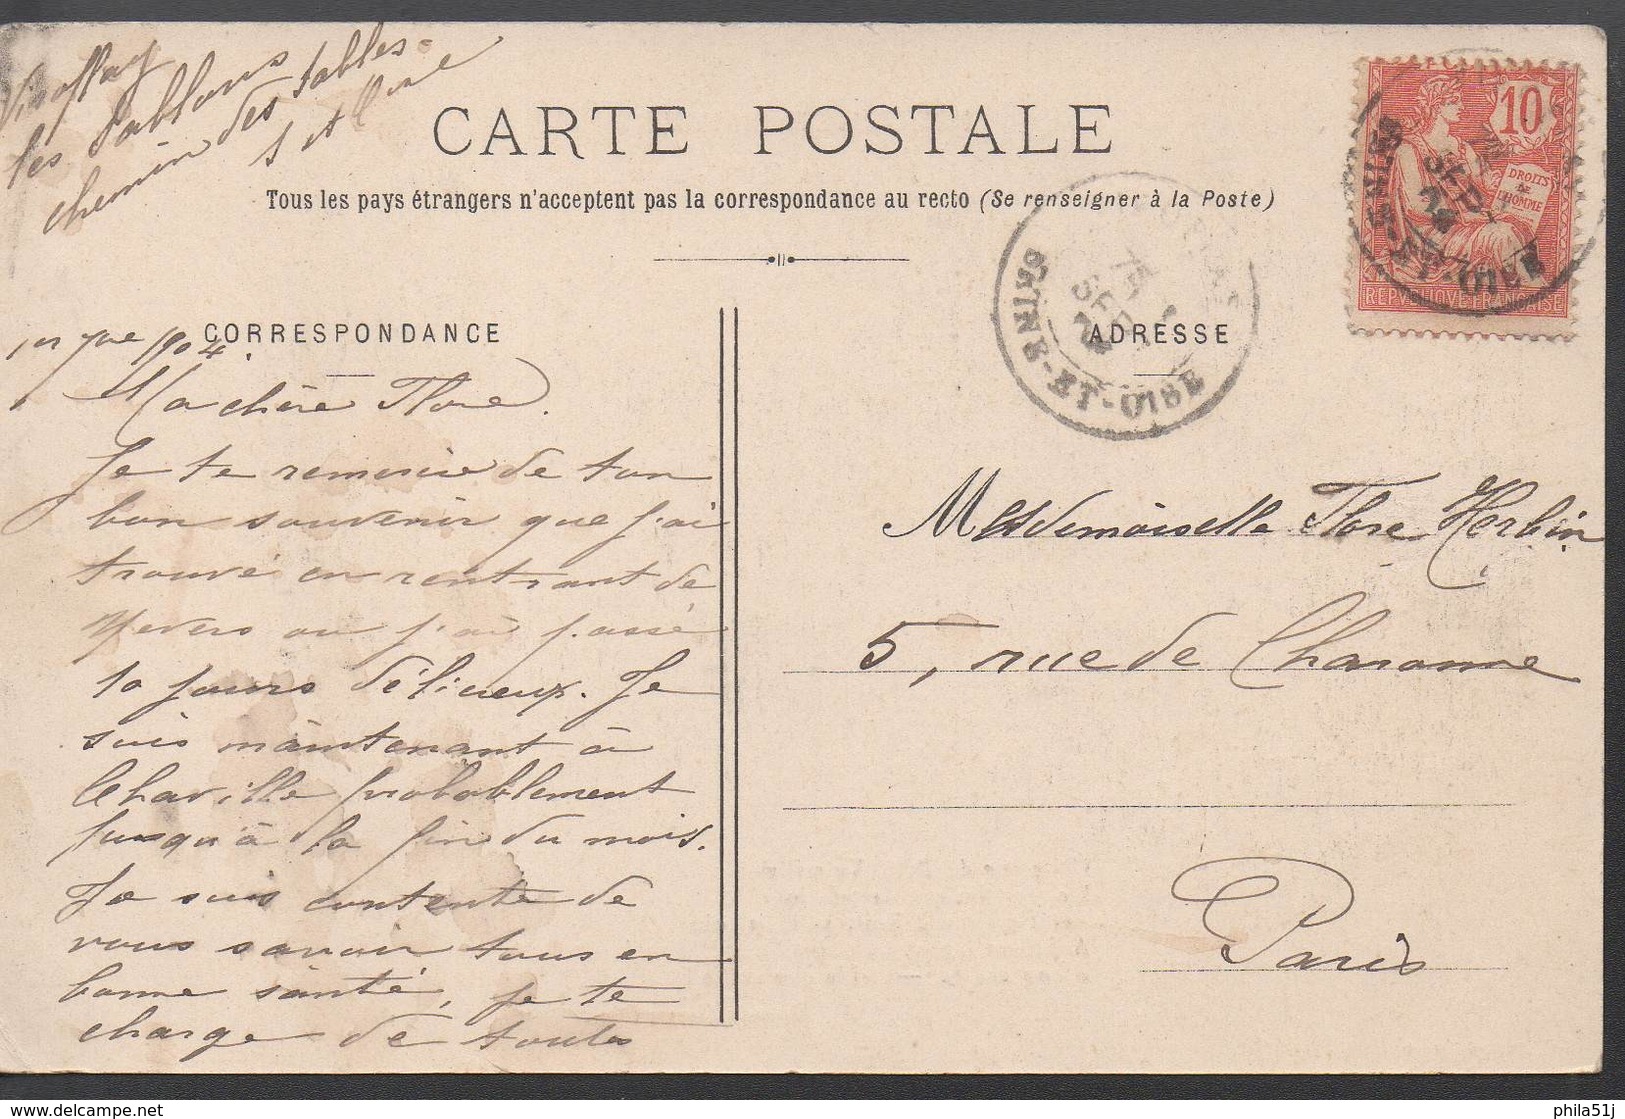 Viroflay
les Sablons
chemin des sables
S et Oise
CARTE POSTALE
Tous les pays étrangers n'acceptent pas la correspondance au recto (Se renseigner à la Poste)
10
DROITS
DE
L'HOMME
REPVBLIQVE FRANÇAISE
SEINE-ET-OISE
SEINE-ET-OISE
SEPT
CORRESPONDANCE
ADRESSE
1er 7bre 1904.
Ma chère Flore.
Je te remercie de ton
bon souvenir que j'ai
trouvé en rentrant de
Nevers où j'ai passé
10 jours délicieux. Je
suis maintenant à
Chaville probablement
jusqu'à la fin du mois.
Je suis contente de
vous savoir tous en
bonne santé, je te
charge de toutes
Mesdemoiselle Flore Herbin
5, rue de Charonne
Paris
www.delcampe.net
phila51j